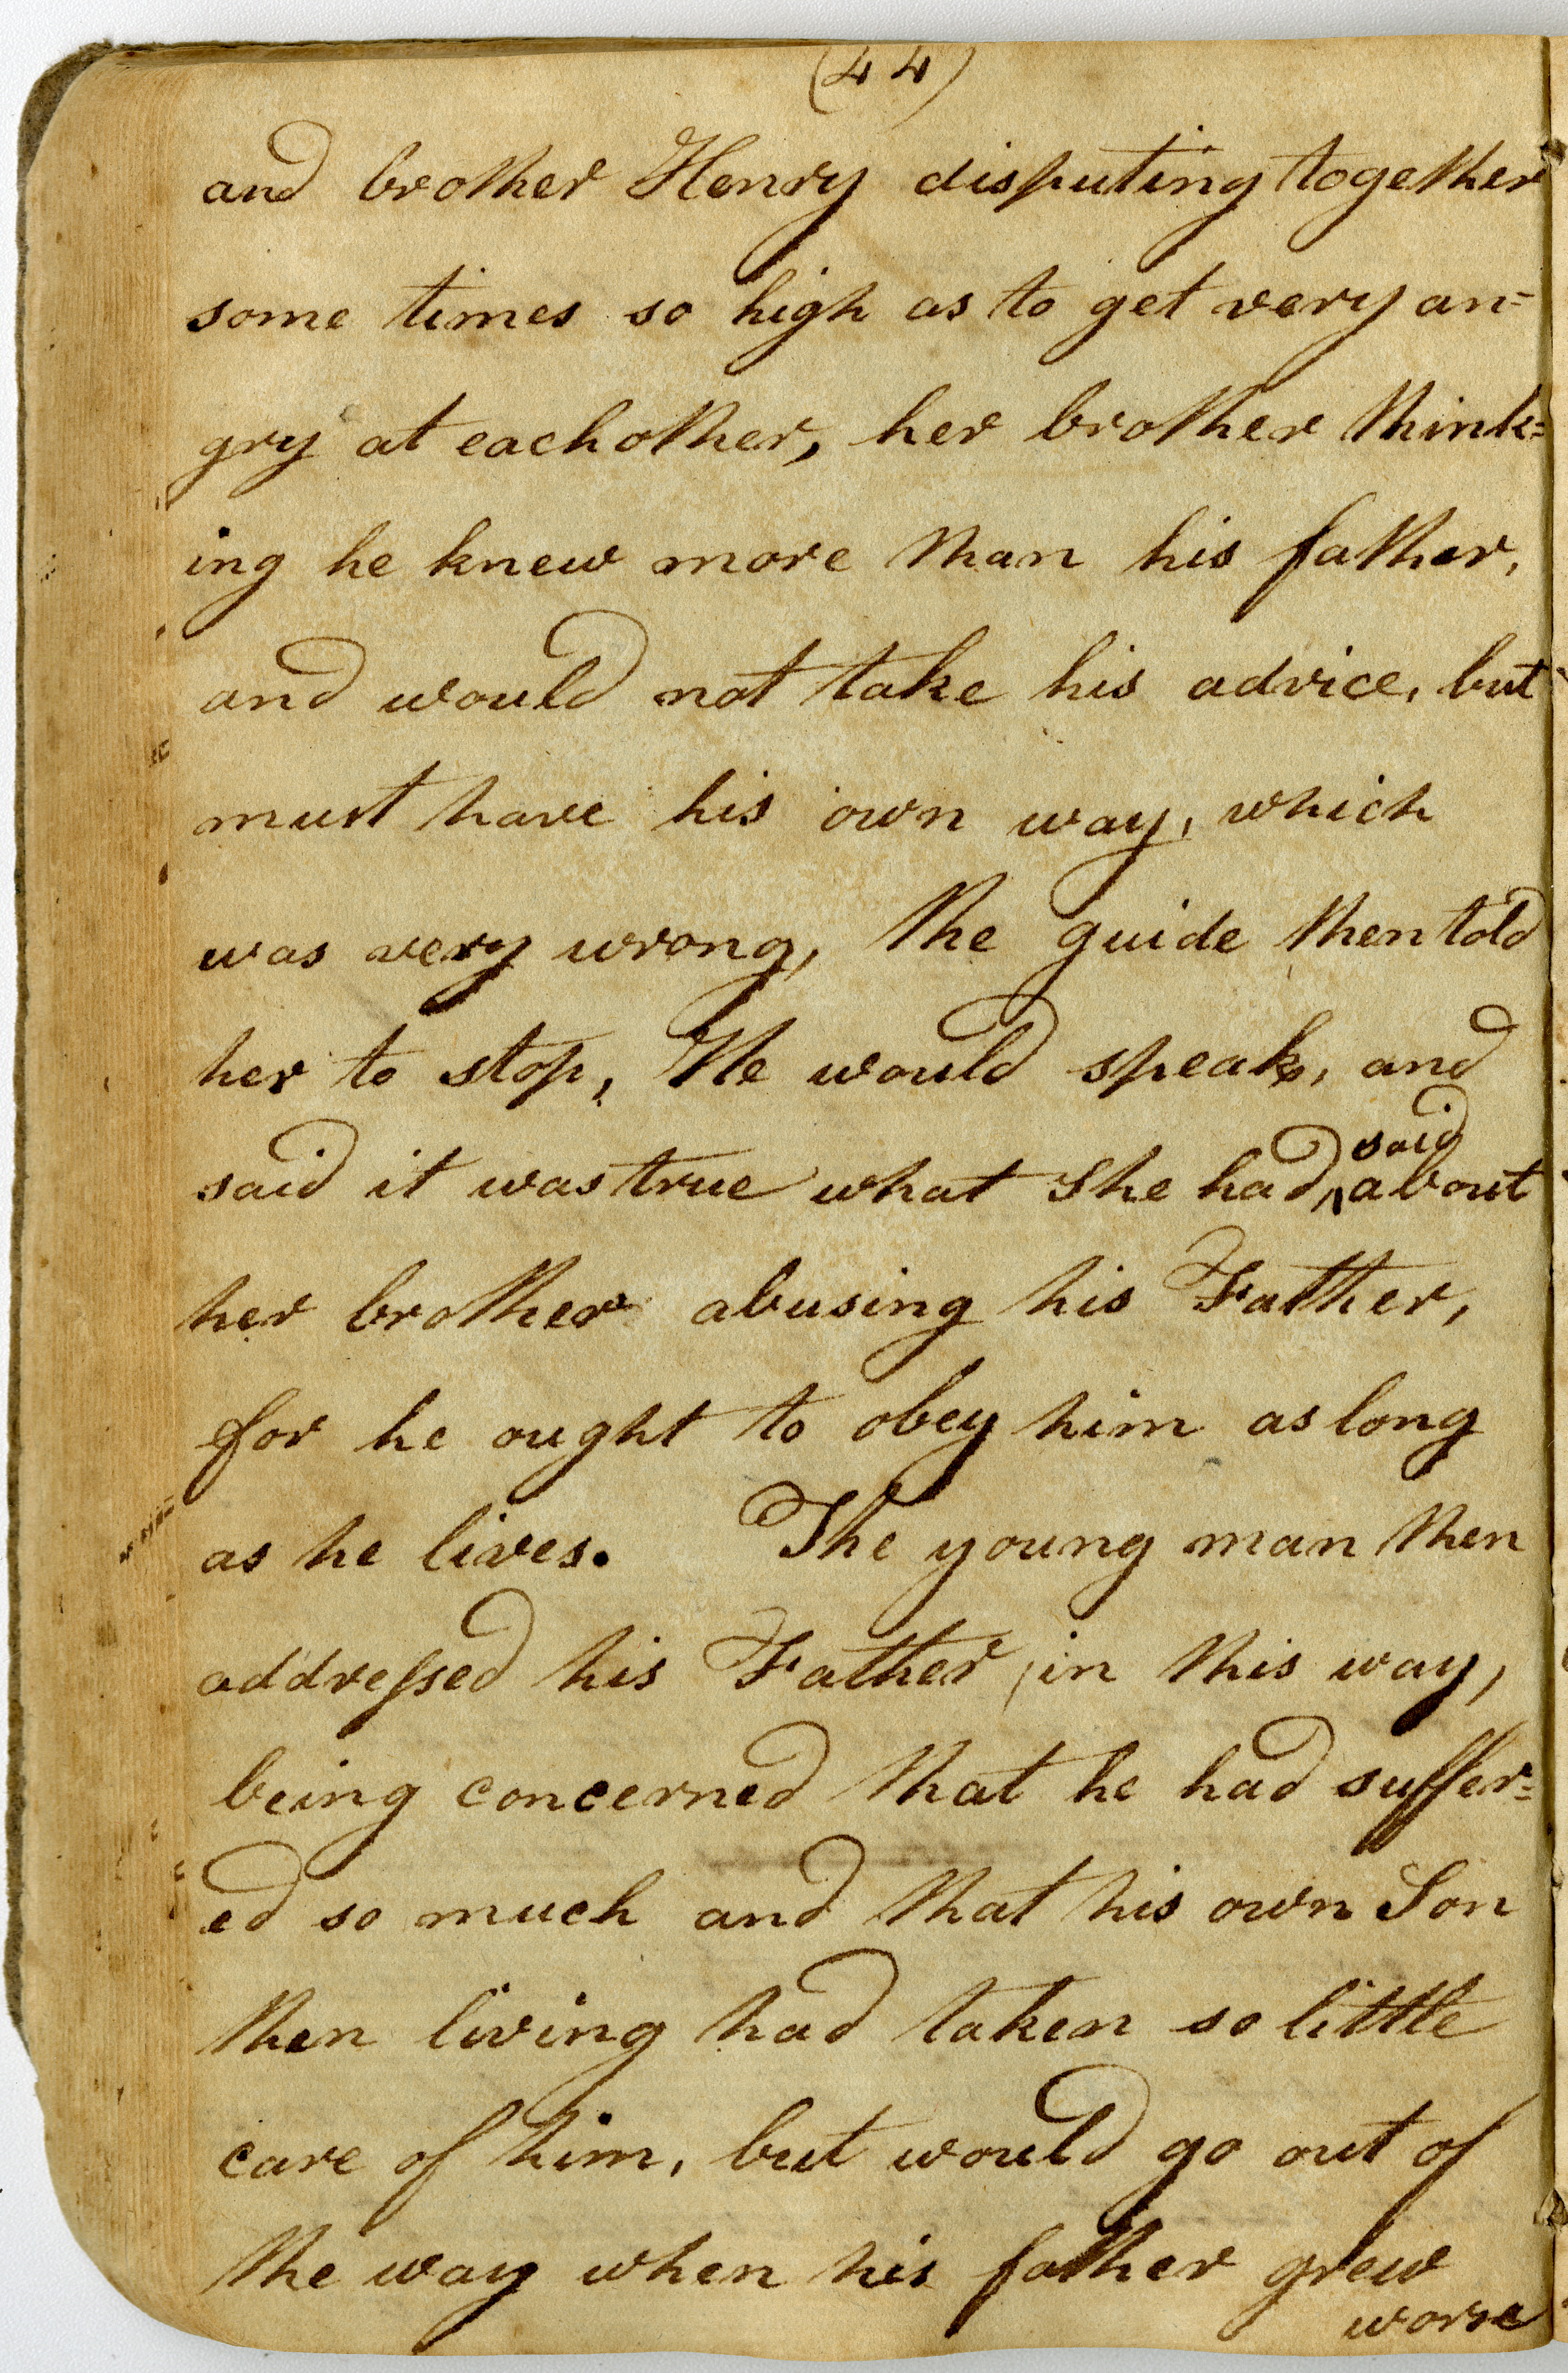 (44)
and brother Henry disputing together
some times so high as to get very an=
gry at eachother, her brother think=
ing he knew more than his father,
and would not take his advice, but
must have his own way, which
was very wrong, the guide then told
her to stop, He would speak, and
said it was true what She had said about
her brother abusing his Father,
for he ought to obey him as long
as he lives. The young man then
addressed his Father, in this way,
being concerned that he had suffer=
ed so much and that his own Son
then living had taken so little
care of him, but would go out of
the way when his father grew
worse